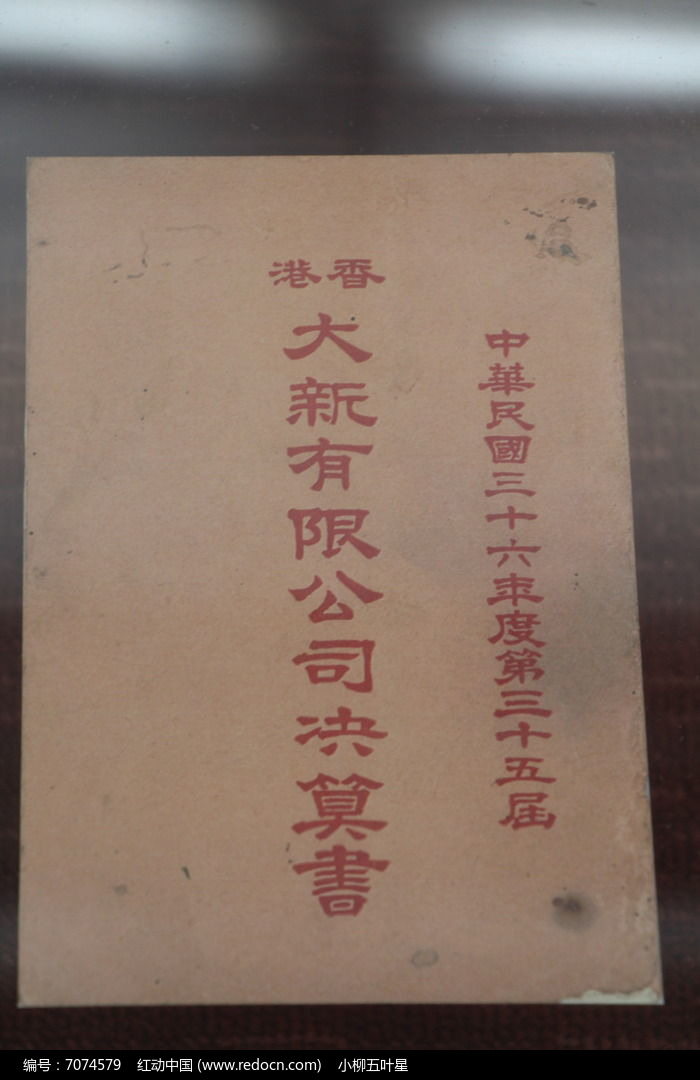 中華民國三十六年度第三十五届
香港
大新有限公司决算書
编号：7074579 红动中国 (www.redocn.com) 小柳五叶星